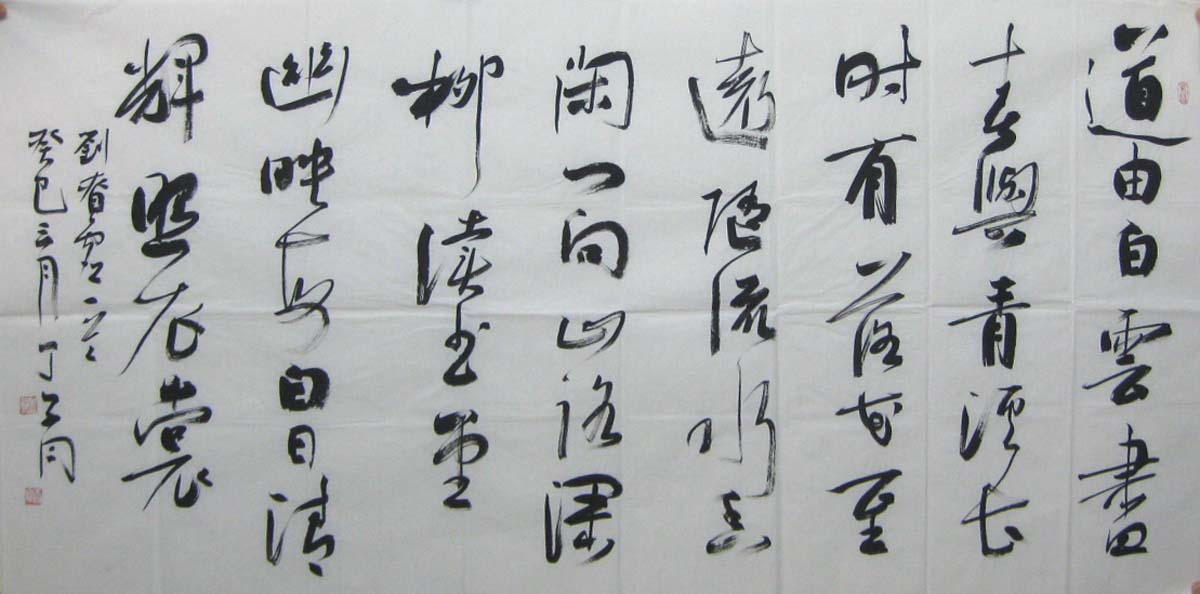 道由白雲盡
春與青溪長
时有落花至
遠隨流水香
闲门向山路深
柳读书堂
幽映每白日清
輝照衣裳
劉眘虛一首
癸巳三月丁